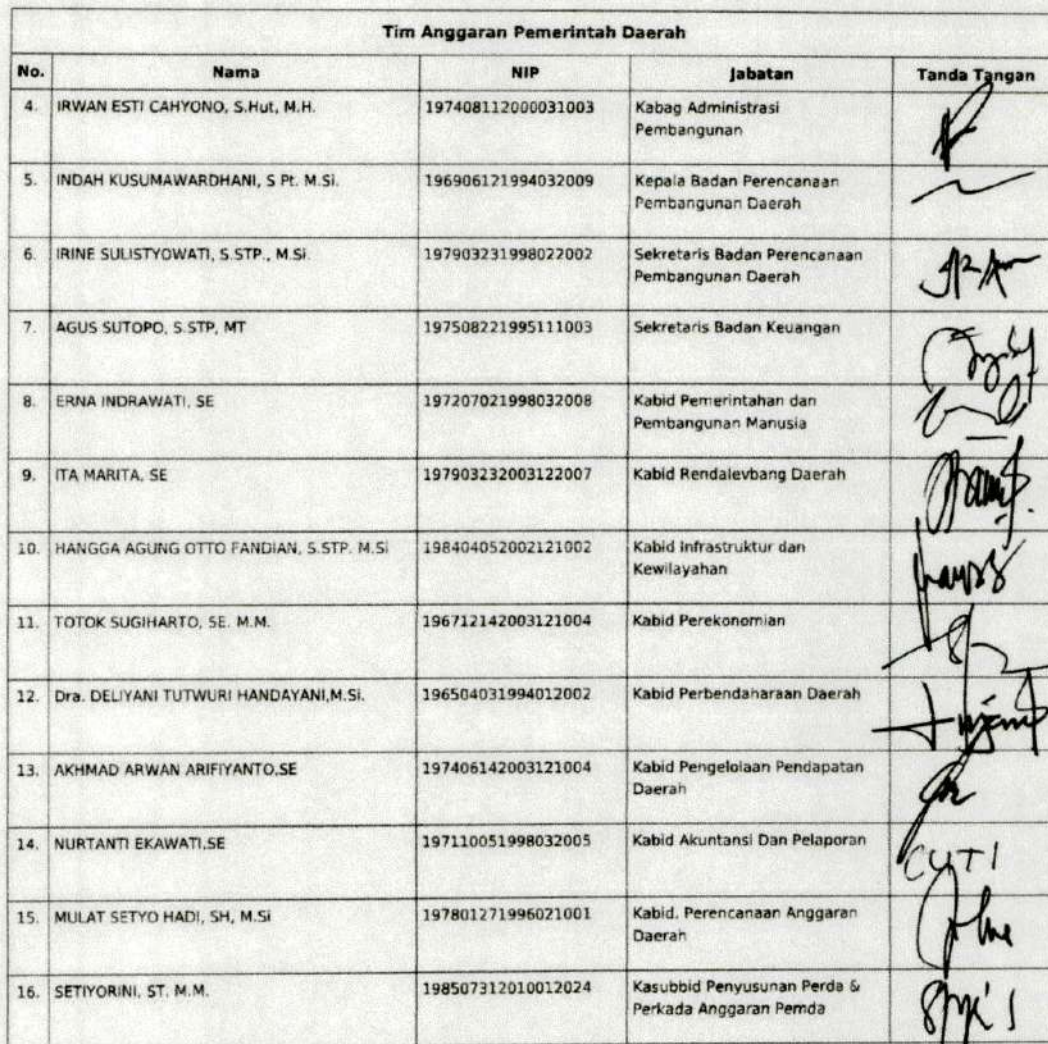 Tim Anggaran Pemerintah Daerah
No. Nama NIP Jabatan Tanda Tangan
4. IRWAN ESTI CAHYONO, S.Hut, M.H. 197408112000031003 Kabag Administrasi
Pembangunan
5. INDAH KUSUMAWARDHANI, S Pt. M.Si. 196906121994032009 Kepala Badan Perencanaan
Pembangunan Daerah
6. IRINE SULISTYOWATI, S.STP., M.Si. 197903231998022002 Sekretaris Badan Perencanaan
Pembangunan Daerah
7. AGUS SUTOPO, S.STP, MT 197508221995111003 Sekretaris Badan Keuangan
8. ERNA INDRAWATI, SE 197207021998032008 Kabid Pemerintahan dan
Pembangunan Manusia
9. ITA MARITA, SE 197903232003122007 Kabid Rendalevbang Daerah
10. HANGGA AGUNG OTTO FANDIAN, S.STP. M.Si 198404052002121002 Kabid Infrastruktur dan
Kewilayahan
11. TOTOK SUGIHARTO, SE. M.M. 196712142003121004 Kabid Perekonomian
12. Dra. DELIYANI TUTWURI HANDAYANI,M.Si. 196504031994012002 Kabid Perbendaharaan Daerah
13. AKHMAD ARWAN ARIFIYANTO,SE 197406142003121004 Kabid Pengelolaan Pendapatan
Daerah
14. NURTANTI EKAWATI,SE 197110051998032005 Kabid Akuntansi Dan Pelaporan CUTI
15. MULAT SETYO HADI, SH, M.Si 197801271996021001 Kabid. Perencanaan Anggaran
Daerah
16. SETIYORINI, ST. M.M. 198507312010012024 Kasubbid Penyusunan Perda &
Perkada Anggaran Pemda